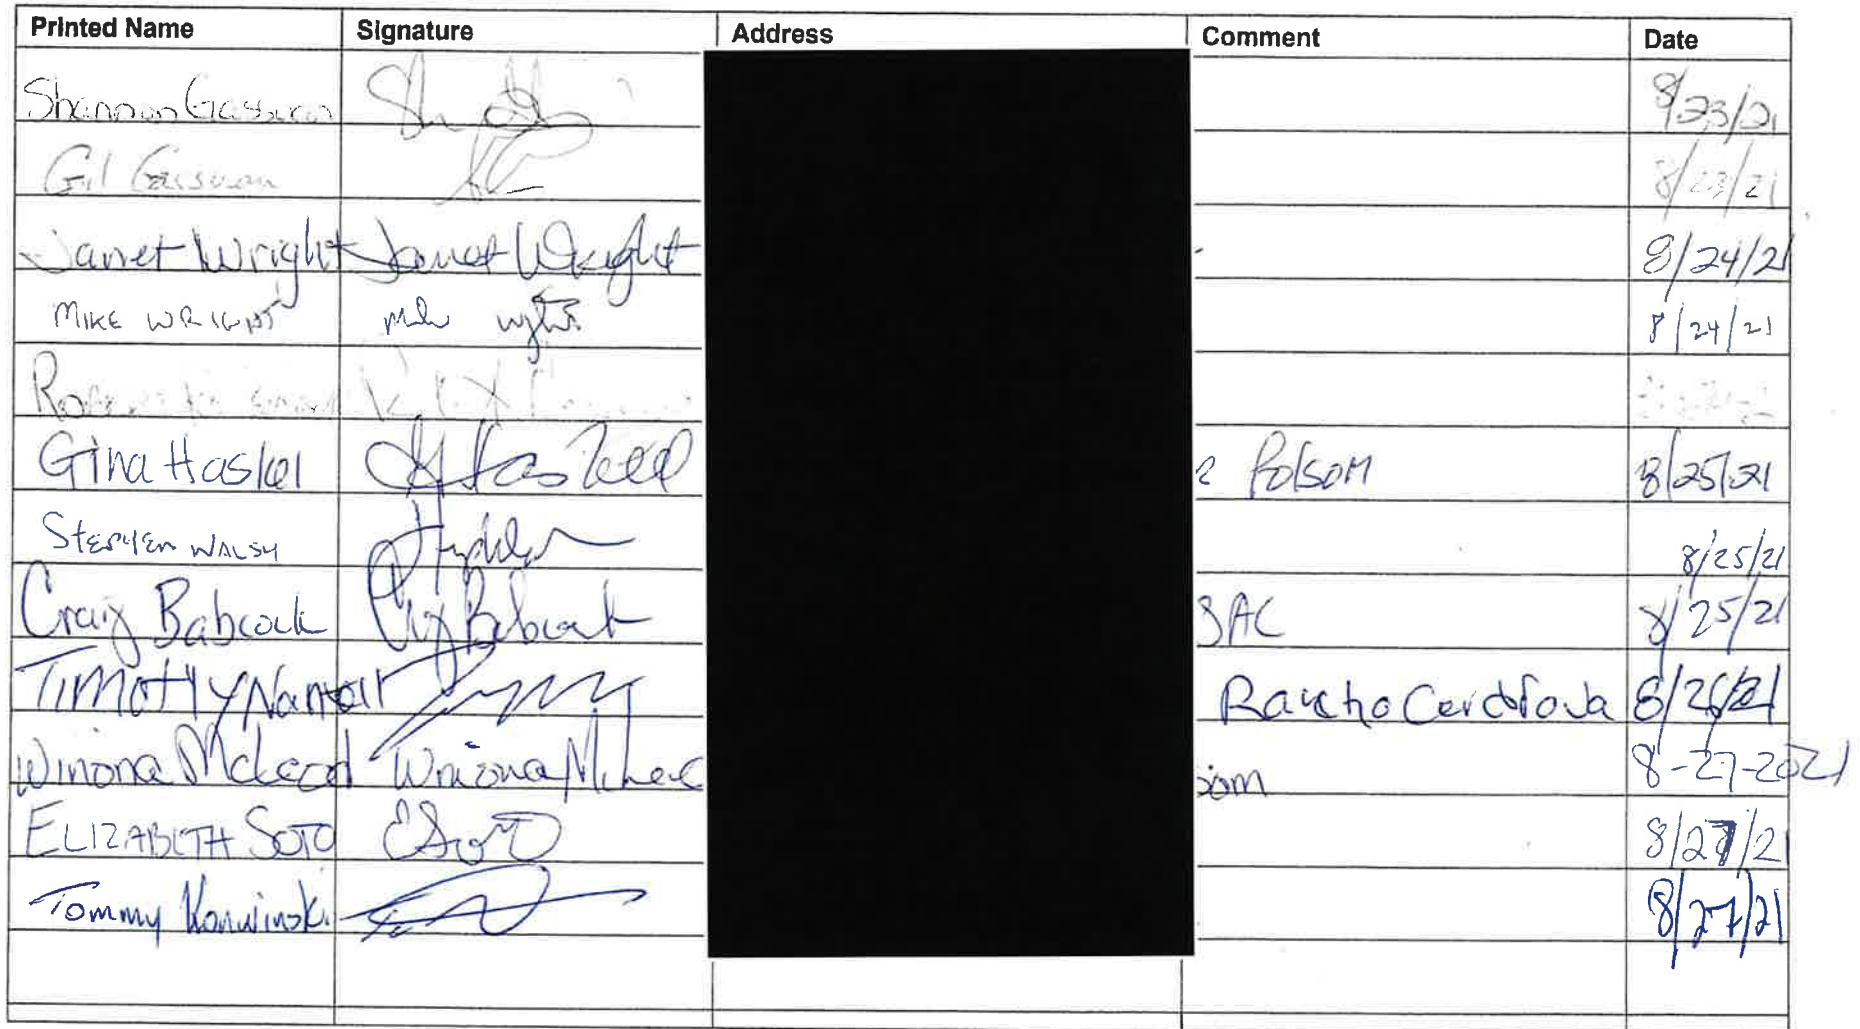 Printed Name Signature Address Comment Date
Shannon 8/23/21
Gil 8/23/21
Janet Wright Janet Wright 8/24/21
MIKE WRIGHT 8/24/21
Robert
Gina Haskel Haskell Folsom 8/25/21
STEPHEN WALSH 8/25/21
Craig Babcock Craig Babcock SAC 8/25/21
TIMOTHY Rancho Cordova 8/26/21
Winona McLeod Winona McLeod som 8-27-2021
ELIZABETH SOTO ESoto 8/27/21
Tommy Konwinski 8/27/21